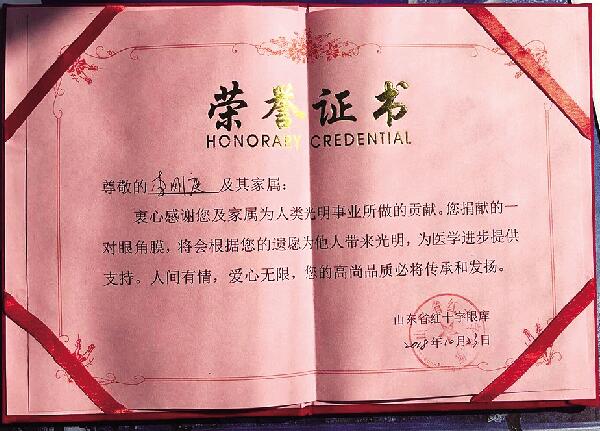 荣誉证书
HONORARY CREDENTIAL
尊敬的李刚 及其家属：
衷心感谢您及家属为人类光明事业所做的贡献。您捐献的一
对眼角膜，将会根据您的遗愿为他人带来光明，为医学进步提供
支持。人间有情，爱心无限，您的高尚品质必将传承和发扬。
山东省红十字眼库
2018年10月23日